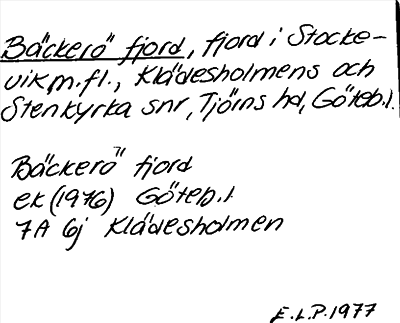 Bäckerö fjord, fjord i Stocke-
vik m.fl., Klädesholmens och
Stenkyrka snr, Tjörns hd, Göteb.l.
Bäckerö fjord
ek (1976) Göteb.l.
7A 6j Klädesholmen
E.L.P. 1977